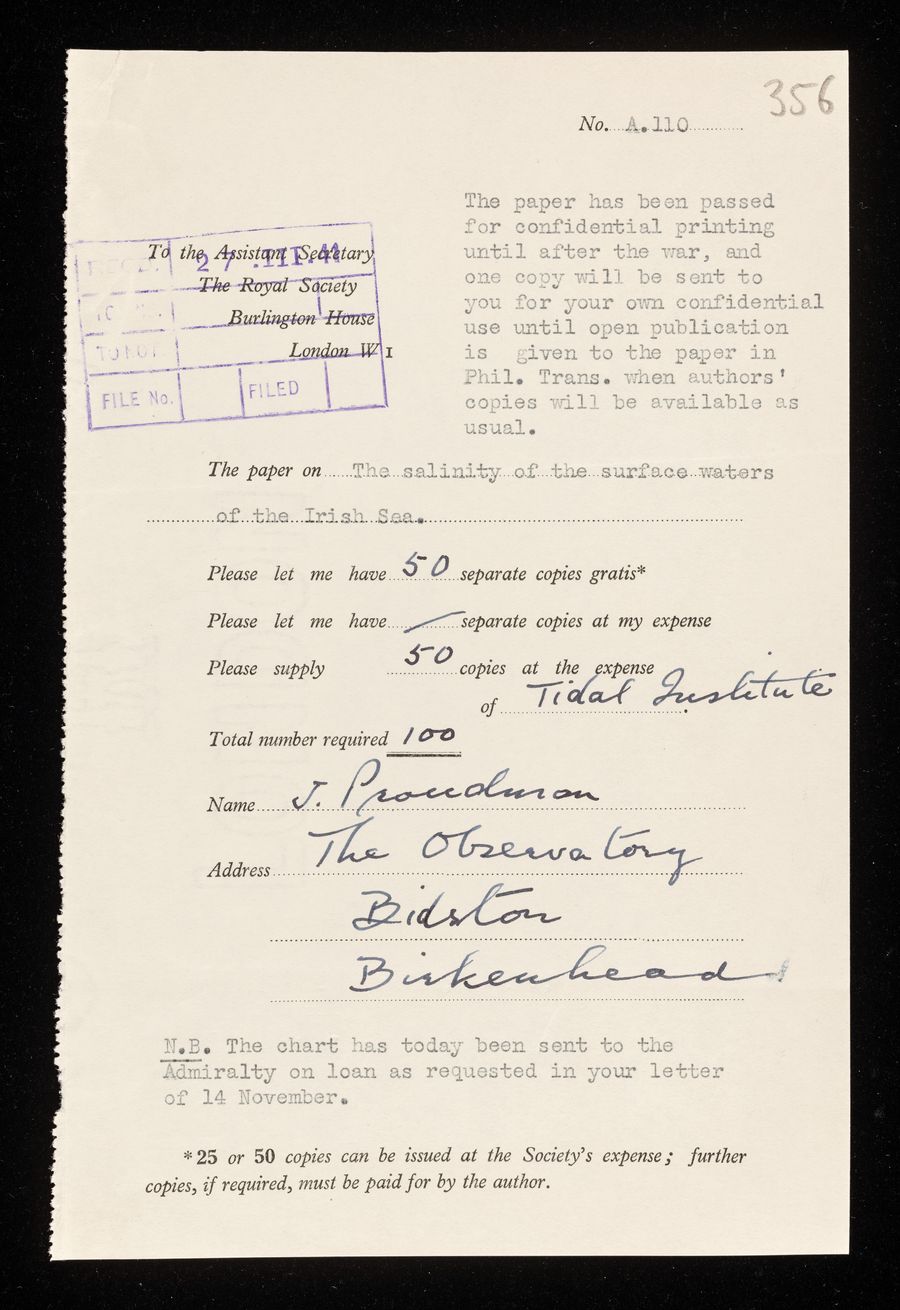 356
No. A.110
The paper has been passed
for confidential printing
until after the war, and
one copy will be sent to
you for your own confidential
use until open publication
is given to the paper in
Phil. Trans. when authors'
copies will be available as
usual.
To the Assistant Secretary
27.III.44
The Royal Society
Burlington House
London W1
TO NOT.
FILE No.
FILED
The paper on The salinity of the surface waters
of the Irish Sea.
Please let me have 50 separate copies gratis*
Please let me have / separate copies at my expense
Please supply 50 copies at the expense
of Tidal Institute
Total number required 100
Name J. Proudman
Address The Observatory
Bidston
Birkenhead
N.B. The chart has today been sent to the
Admiralty on loan as requested in your letter
of 14 November.
*25 or 50 copies can be issued at the Society's expense; further
copies, if required, must be paid for by the author.